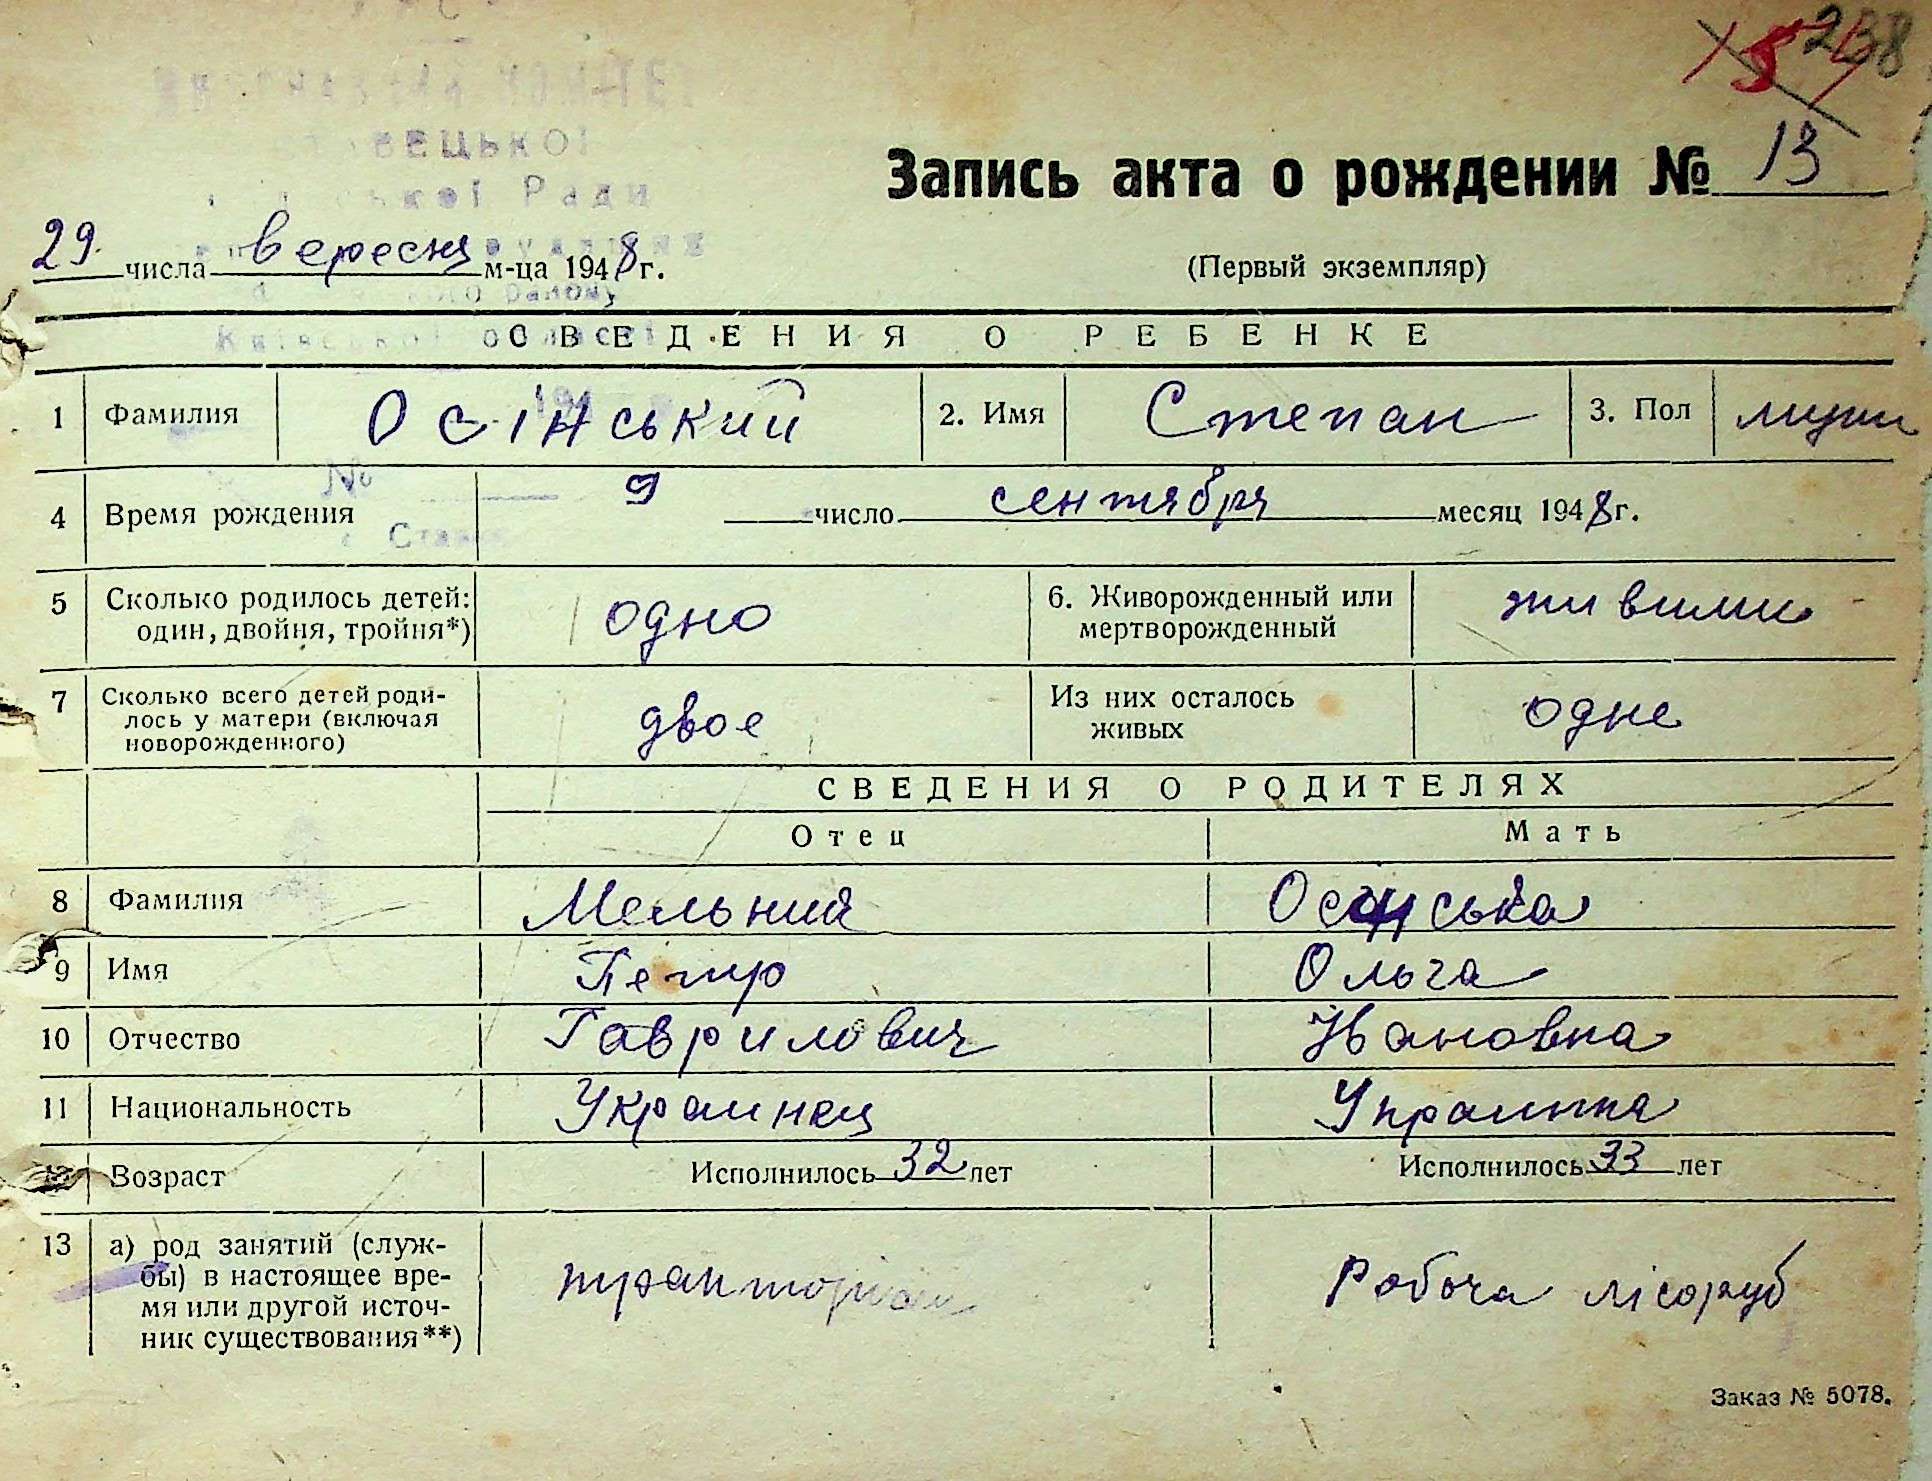 238
ВЕЦЬКОЇ
Ради
Запись акта о рождении № 13
29 числа вересня м-ца 1948 г.
(Первый экземпляр)
СВЕДЕНИЯ О РЕБЕНКЕ
1 Фамилия Осінський 2. Имя Степан 3. Пол
4 Время рождения 9 число сентября месяц 1948 г.
5 Сколько родилось детей: один, двойня, тройня*) одно 6. Живорожденный или мертворожденный живими
7 Сколько всего детей родилось у матери (включая новорожденного) двое Из них осталось живых одне
СВЕДЕНИЯ О РОДИТЕЛЯХ
Отец Мать
8 Фамилия Мельник Осінська
9 Имя Петро Ольга
10 Отчество Гаврилович Ивановна
11 Национальность Украинец Украинка
12 Возраст Исполнилось 32 лет Исполнилось 33 лет
13 а) род занятий (службы) в настоящее время или другой источник существования**) Робоча лісоруб
Заказ № 5078.